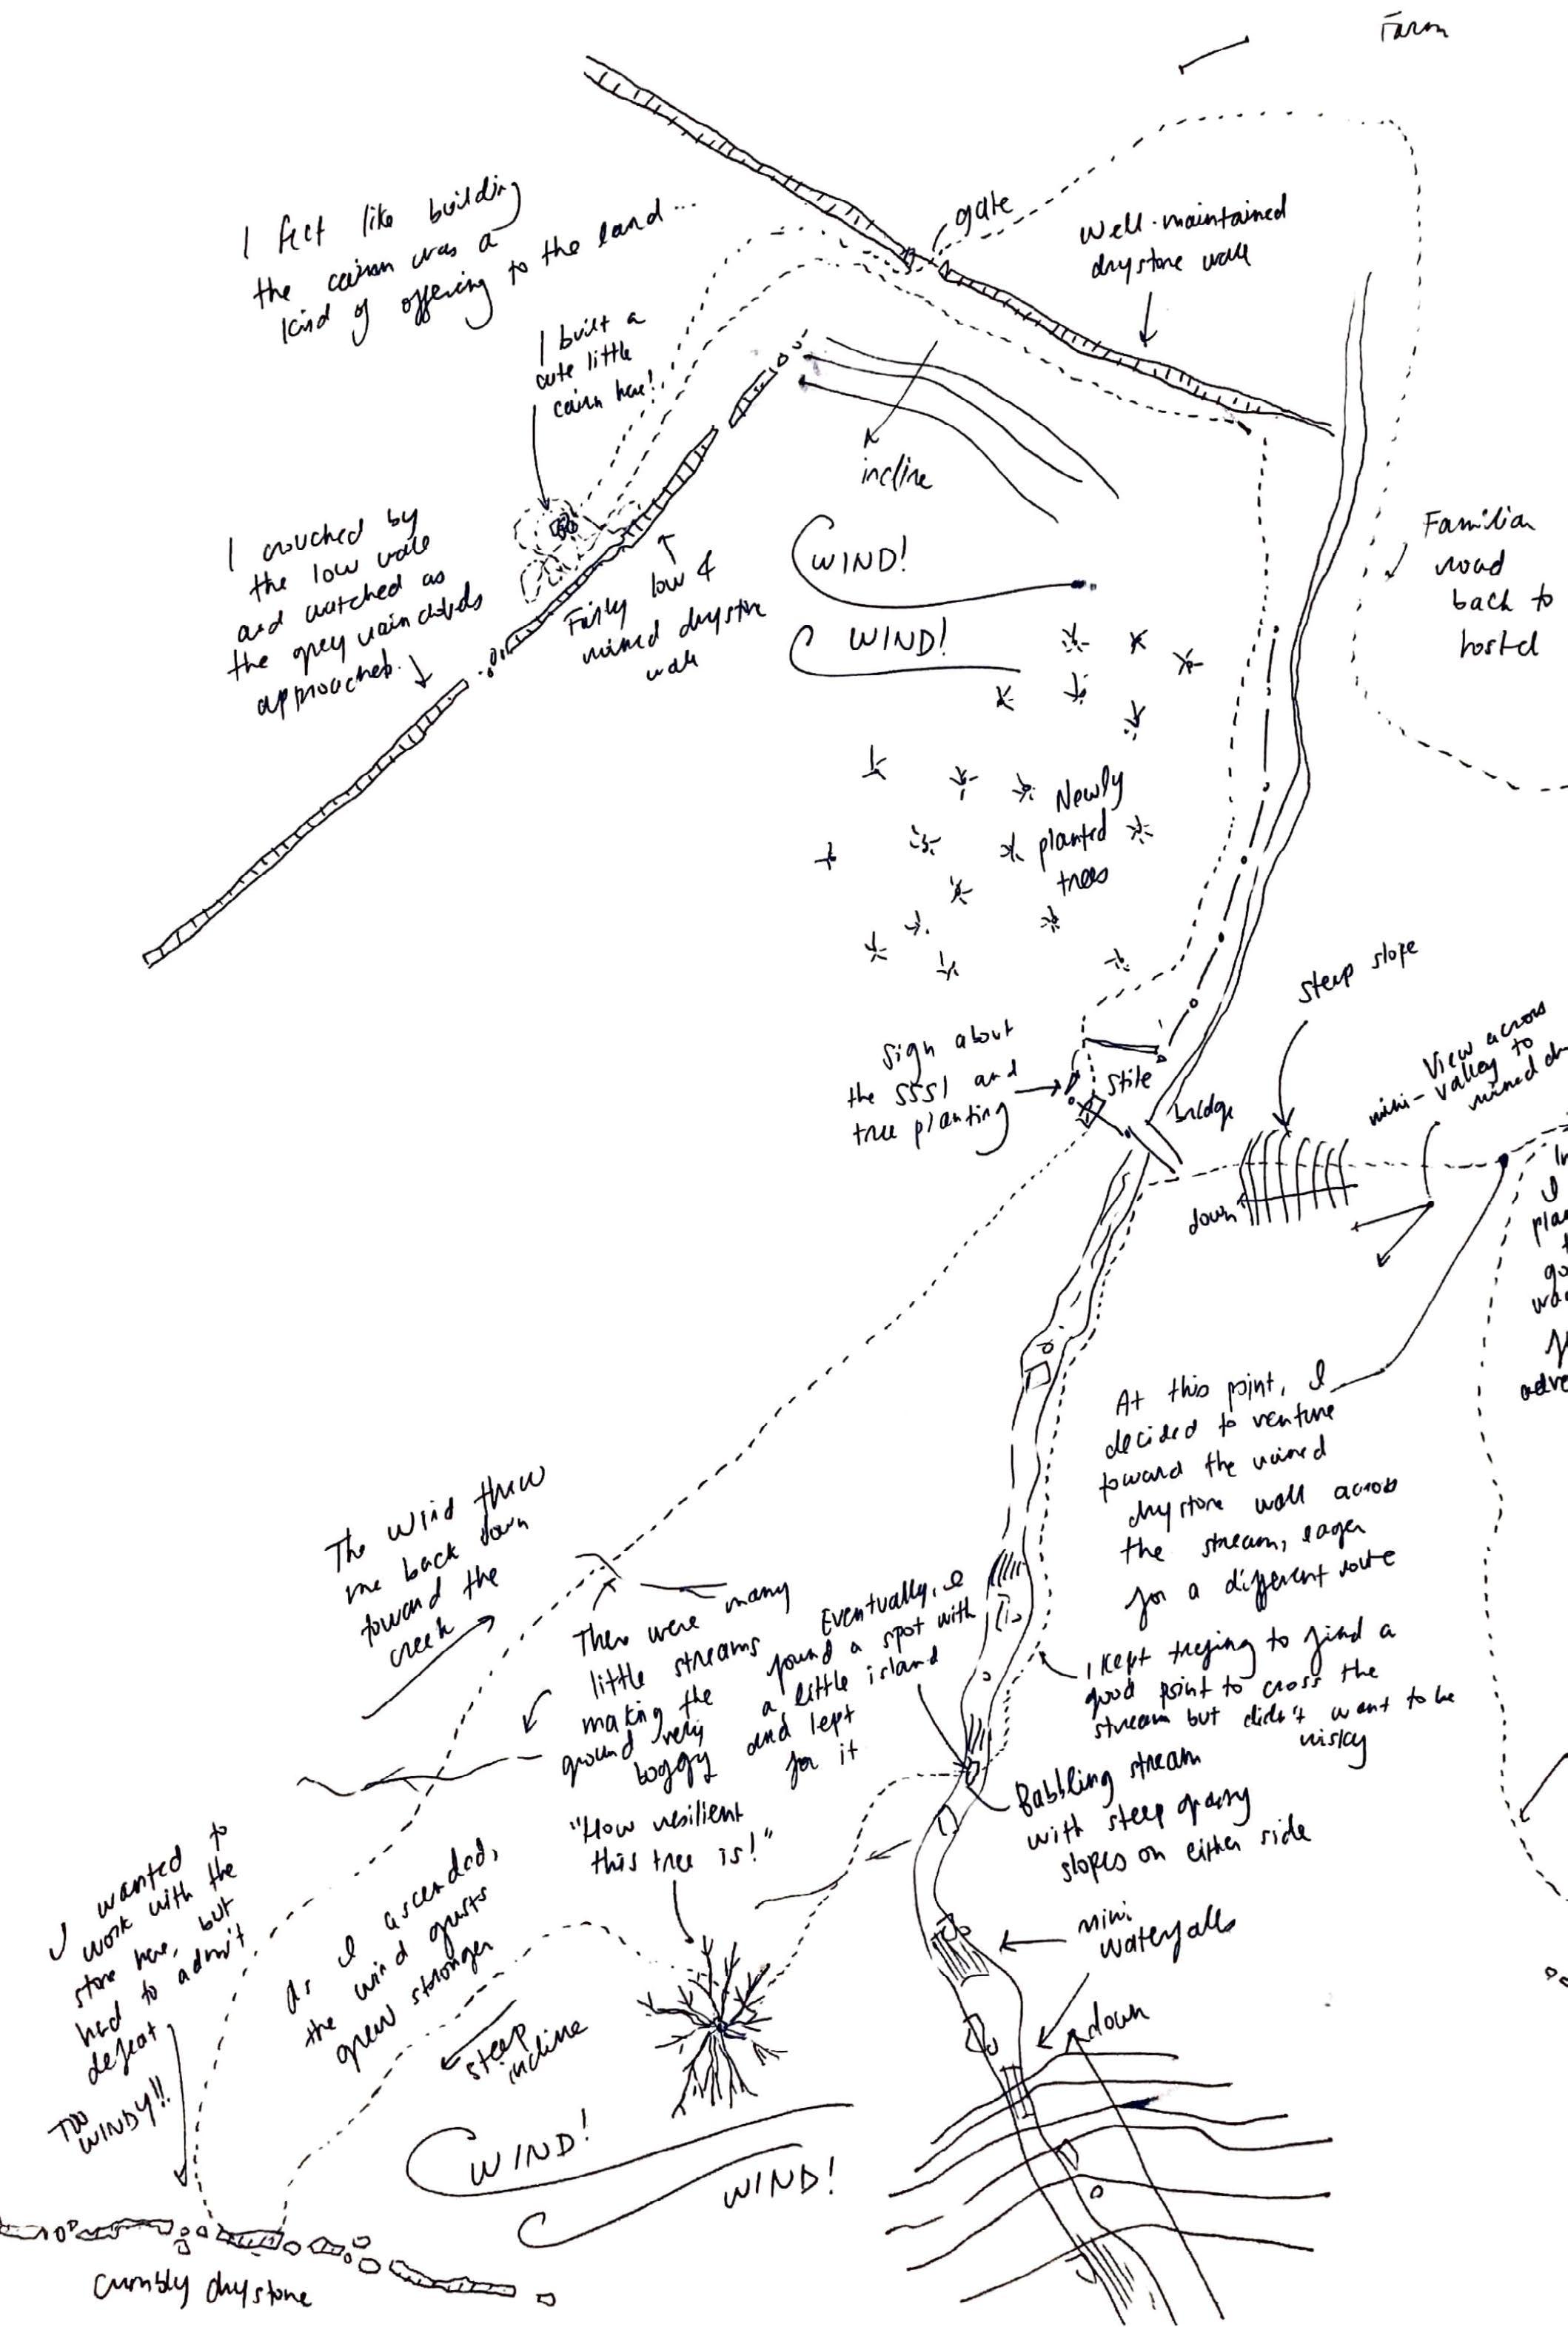 Farm
gate
Well-maintained
drystone wall
I felt like building
the cairn was a
kind of offering to the land...
I built a
cute little
cairn here!
incline
I crouched by
the low wall
and watched as
the grey rain clouds
approached.
Fairly low &
ruined drystone
wall
WIND!
WIND!
Familiar
road
back to
hostel
Newly
planted
trees
steep slope
Sign about
the SSSI and
tree planting
stile
bridge
View across
mini-valley to
ruined
down
At this point, I
decided to venture
toward the ruined
drystone wall across
the stream, eager
for a different route
The wind threw
me back down
toward the
creek
There were many
little streams
making the
ground very
boggy
Eventually, I
found a spot with
a little island
and lept
for it
I kept trying to find a
good point to cross the
stream but didn't want to be
risky
Babbling stream
with steep grassy
slopes on either side
"How resilient
this tree is!"
mini
waterfalls
down
I wanted to
work with the
stone here, but
had to admit
defeat
TOO
WINDY!!
As I ascended,
the wind gusts
grew stronger
steep
incline
WIND!
WIND!
Crumbly drystone